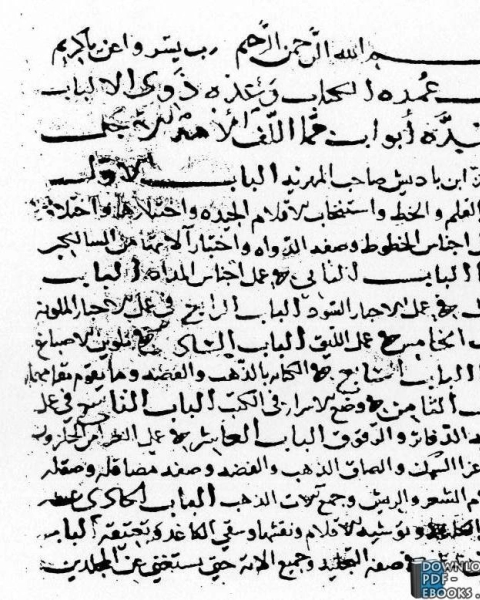 بسم الله الرحمن الرحيم رب يسر واعن يا كريم
عمدة الكتاب وعدة ذوي الالباب
عدة أبواب مما اللف الأمير الأجل
ابن باديس صاحب المهدية الباب الاول
القلم والخط وانتخاب الاقلام الجيدة واختلافها واختلاف
اجناس الخطوط وصفة الدواة واختيار آلاتها من السكاكين
الباب الثاني في عمل اجناس المداد الباب
في عمل الاحبار السود الباب الرابع في عمل الاحبار الملونة
الخامس في عمل الليق الباب السادس في تلوين الاصباغ
الباب السابع في الكتابة بالذهب والفضة وما يقوم مقامهما
الثامن في وضع الاسرار في الكتب الباب التاسع في عمل
الدفاتر والرقوق الباب العاشر في عمل الغرا من الحلزون
غرا السمك والصاق الذهب والفضة وصفة مصاقله وصقله
الشعر والريش وجمع آلات الذهب الباب الحادي عشر
الكاغد وتوشية الاقلام ونقشها وسقي الكاغد وتعتيقه الباب
في صفة التجليد وجميع الاته حتى يستغنى عن المجلدين
DOWNLO
PDF-
EBOOKS.